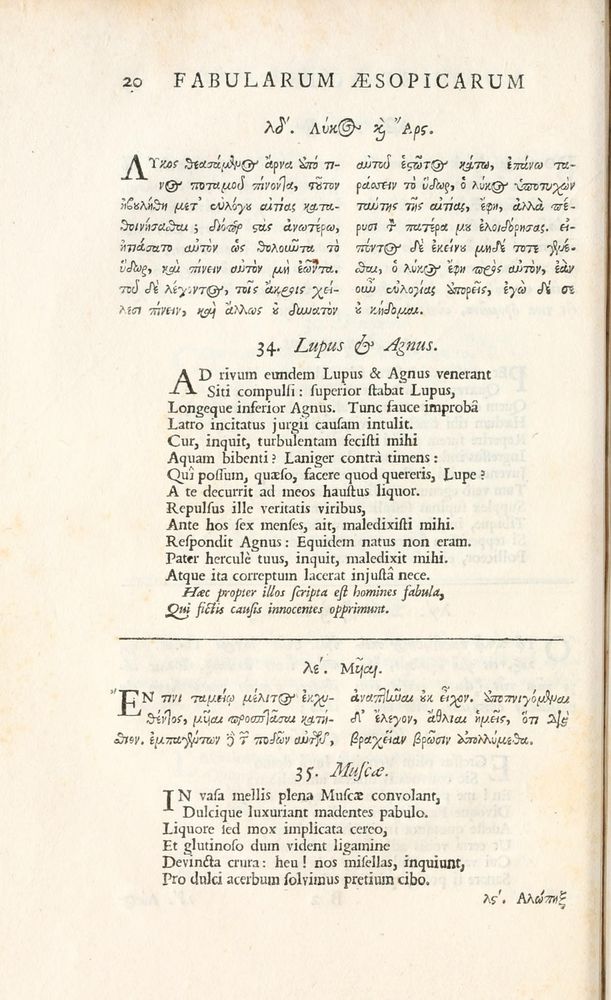 20 FABULARUM ÆSOPICARUM
λδʹ. Λύκος καὶ Ἄρς.
ΛΥκος θεασάμενος ἄρνα ἀπό τι-
νος ποταμοῦ πίνοντα, τοῦτον
ἠβουλήθη μετ' εὐλόγου αἰτίας κατα-
θοινήσασθαι; διόπερ στὰς ἀνωτέρω,
ἠτιάσατο αὐτὸν ὡς θολοῦντα τὸ
ὕδωρ, καὶ πίνειν αὐτὸν μὴ ἐῶντα.
τοῦ δὲ λέγοντος, τοῖς ἄκροις χεί-
λεσι πίνειν, καὶ ἄλλως οὐ δυνατὸν
αὐτοῦ ἑστῶτος κάτω, ἐπάνω τα-
ράσσειν τὸ ὕδωρ, ὁ λύκος ἀποτυχὼν
ταύτης τῆς αἰτίας, ἔφη, ἀλλὰ πέ-
ρυσι τὸν πατέρα μου ἐλοιδόρησας. εἰ-
πόντος δὲ ἐκείνου μηδέ ποτε γενέ-
σθαι, ὁ λύκος ἔφη πρὸς αὐτὸν, ἐὰν
οὖν εὐλογίας ἀπορεῖς, ἐγὼ δέ σε
οὐ κήδομαι.
34. Lupus & Agnus.
AD rivum eundem Lupus & Agnus venerant
Siti compulsi: superior stabat Lupus,
Longeque inferior Agnus. Tunc fauce improbâ
Latro incitatus jurgii causam intulit.
Cur, inquit, turbulentam fecisti mihi
Aquam bibenti? Laniger contrà timens:
Quî possum, quæso, facere quod quereris, Lupe?
A te decurrit ad meos haustus liquor.
Repulsus ille veritatis viribus,
Ante hos sex menses, ait, maledixisti mihi.
Respondit Agnus: Equidem natus non eram.
Pater herculè tuus, inquit, maledixit mihi.
Atque ita correptum lacerat injustâ nece.
Hæc propter illos scripta est homines fabula,
Qui fictis causis innocentes opprimunt.
λεʹ. Μῦαι.
ἜΝ τινι ταμείῳ μέλιτος ἐκχυ-
θέντος, μῦαι προσπτᾶσαι κατή-
σθιον. ἐμπαγέντων δὲ τῶν ποδῶν αὐτῶν,
ἀναπτῆναι οὐκ εἶχον. ἀποπνιγόμεναι
δ' ἔλεγον, ἄθλιαι ἡμεῖς, ὅτι διὰ
βραχεῖαν βρῶσιν ἀπολλύμεθα.
35. Muscæ.
IN vasa mellis plena Muscæ convolant,
Dulcique luxuriant madentes pabulo.
Liquore sed mox implicata cereo,
Et glutinoso dum vident ligamine
Devincta crura: heu! nos misellas, inquiunt,
Pro dulci acerbum solvimus pretium cibo.
λςʹ. Αλώπηξ